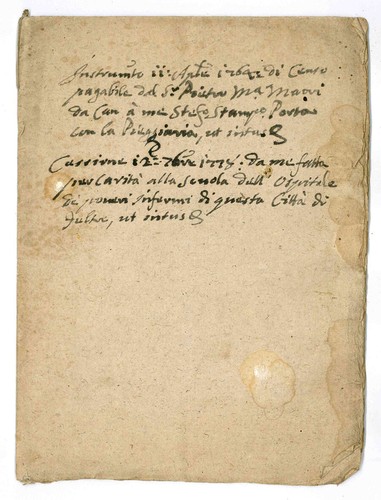 Instrumto 11: Aple 1764: di Censo
pagabile dal Sr. Pietro Ma
da à me Stefo. Stampo. Porta
con la Pieggiaria, ut intus
Cessione 12: 7bre 1774: da me fatta
per Carità alla Scuola dell' Ospitale
de poveri Infermi di questa Città di
Feltre, ut intus